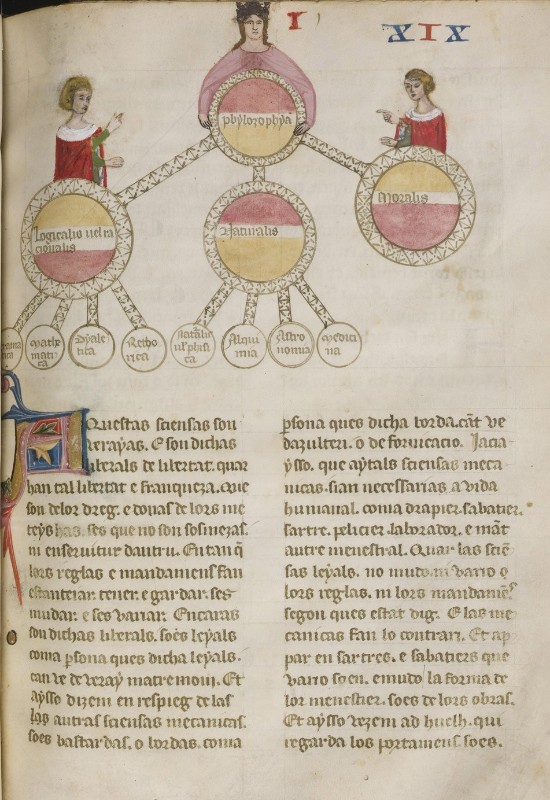 I XIX
phylozophya
Moralis
Logicalis vel ra
cionalis
Naturalis
mathe
matica
Dyale
tica
Retho
rica
naturalis
vel phisi
ca
Alqui
mia
Astro
nomia
Medici
na
Questas sciensas son
verayas. E son dichas
liberals de libertat. quar
han tal libertat e franqueza. que
son de lor dreg. e donas de lors me
teyshas. ses que no son sosmezas.
ni enservitut dautru. En tan q̄
lors reglas e mandamens fan
estanteiar. tener. e gardar. ses
mudar. e ses variar. Encaras
son dichas liberals. soes leyals
coma psona ques dicha leyals.
can ve de veray matremoni. Et
aysso dizem en respieg de las
las autras sciensas mecanicas.
soes bastardas. o bordas. coma
psona ques dicha borda. cāt ve
dazulteri. o de fornicacio. Jacia
ysso. que aytals sciensas meca
nicas. sian necessarias a vida
humanal. coma drapier. sabatier.
sartre. pelicier. laborador. e māt
autre menestral. Quar las sciē
sas leyals. no mudo. ni vario
lors reglas. ni lors mandamēs
segon ques estat dig. E las me
canicas fan lo contrari. Et ap
par en sartres. e sabatiers que
vario soen. e mudo la forma de
lor menestier. soes de lors obras.
Et aysso vezem ad huelh. qui
regarda los portamens. soes.